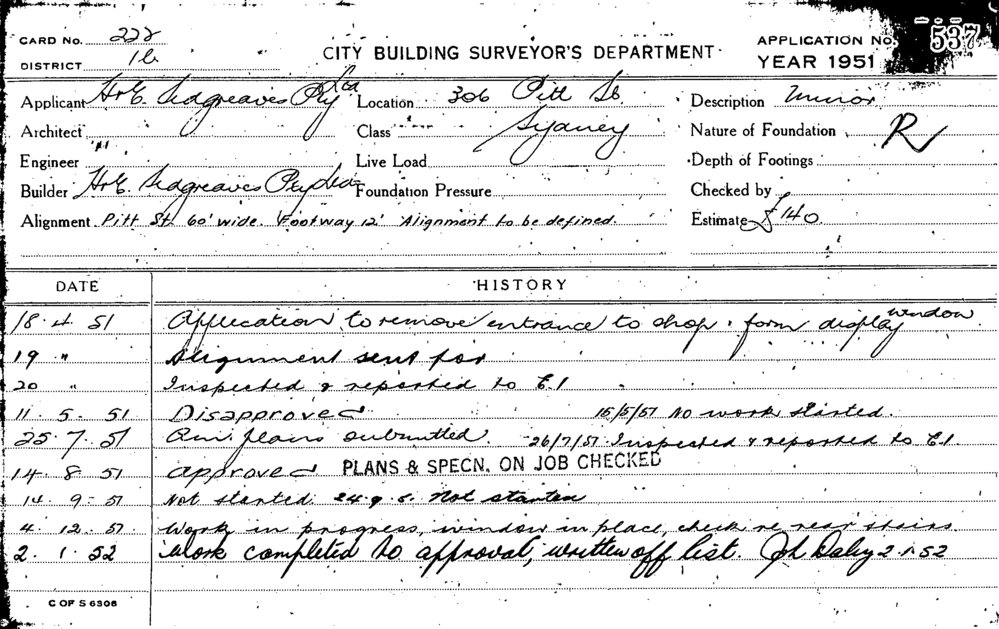 CARD NO. 222
DISTRICT 1b
CITY BUILDING SURVEYOR'S DEPARTMENT
APPLICATION NO. 537
YEAR 1951
Applicant H & E. Sidgreaves Pty Ltd Location 306 Pitt St. Description Minor
Architect Class Sydney Nature of Foundation R
Engineer Live Load Depth of Footings
Builder H & E. Sidgreaves Pty Ltd Foundation Pressure Checked by
Alignment Pitt St. 60' wide. Footway 12' Alignment to be defined. Estimate £140
DATE HISTORY
18.4.51 Application to remove entrance to shop & form display window
19 " Alignment sent for
20 " Inspected & reported to E.I
11.5.51 Disapproved 15/5/51 No work started.
25.7.51 plans submitted 26/7/51 Inspected & reported to E.I.
14.8.51 Approved PLANS & SPECN. ON JOB CHECKED
14.9.51 Not started 24.9.5 Not started
4.12.51 Work in progress, window in place, check re rear stairs
2.1.52 Work completed to approval, written off list. Daly 2.1.52
C OF S 6308